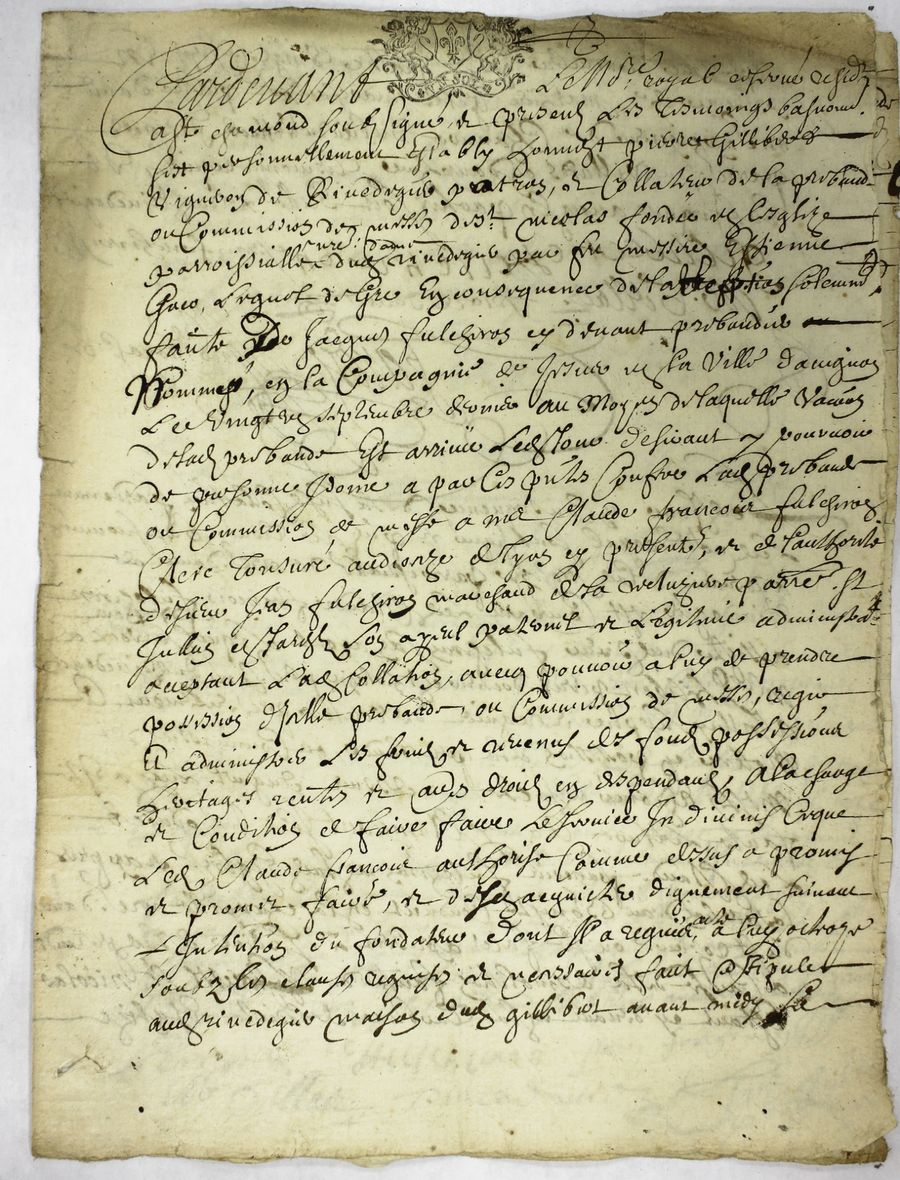 Pardevant Le No.re royal reservé resid.
a St chamond soubsigné et presents Les tesmoings bas nommé
fut personnellement Estably honneste pierre Gillibert
Vigneron de Rivedegier patron, et Collateur de la preband.
ou Commission de messes de St nicolas fondée en Lesglize
parroissialle nre dame dud rivedegier par feu messire Estienne
En consequence de la solemne
faite De Jacques fulchiron cy devant prebandier
Nommé, en la Compagnie de Jesus en la Ville davignon
Le Vingt septembre dernier au Moyen de laquelle Vacation
de lad prebande Est arrivée Led sieur desirant y pourvoir
de personne Idoine a par Ces pntes Conferé Lad prebande
ou Commission de messe a me Claude francois fulchiron
Clerc Tonsuré au dioceze de Lyon cy present, et de l'authorité
de sieur Jean fulchiron marchand de la parre St
Jullien en Jarez son ayeul paternel et Legitime administra.
acceptant Lad Collation, avecq pouvoir a luy de prendre
possession d'jcelle prebande, ou Commission de messes, regir
Et administrer Les fruits et revenus des fonds possessions
heritages rentes et autres droits en despendants, A la charge
et Condition de faire faire Le service In divinis Et que
Led Claude francois authorisé Comme dessus a promis
et promet faire, et de sen acquicter dignement suivant
L Intention du fondateur dont Il a requis acte a luy octroyé
soubz les clauses requises et necessaires fait et stipulé
aud rivedegier maison dud gillibert avant midy Le